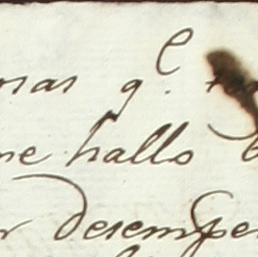 nas q.e
me hallo
r desempe